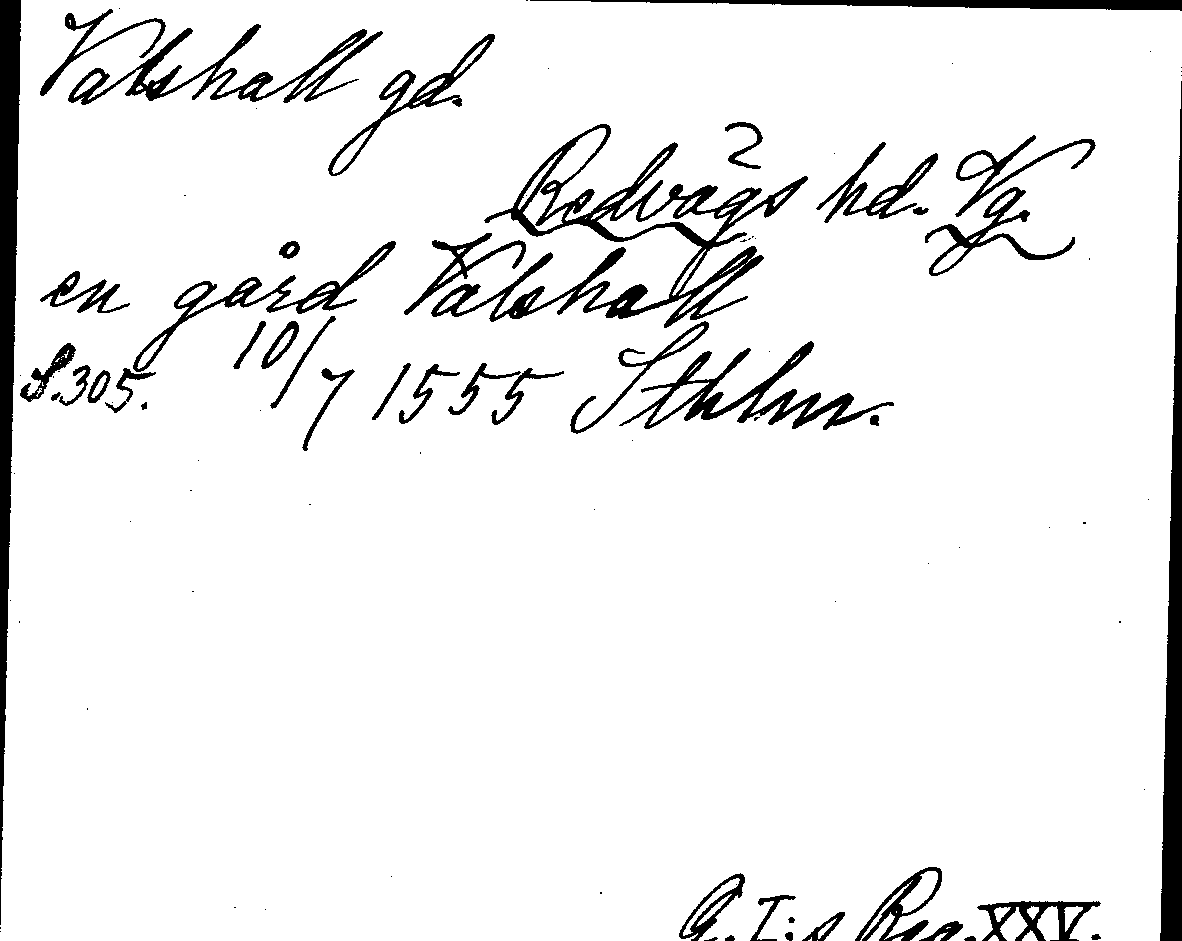 Valshall gd.
Redvägs hd. Vg.
en gård Valshall
S. 305. 10/7 1555 Sthlm.
G. I:s Reg. XXV.